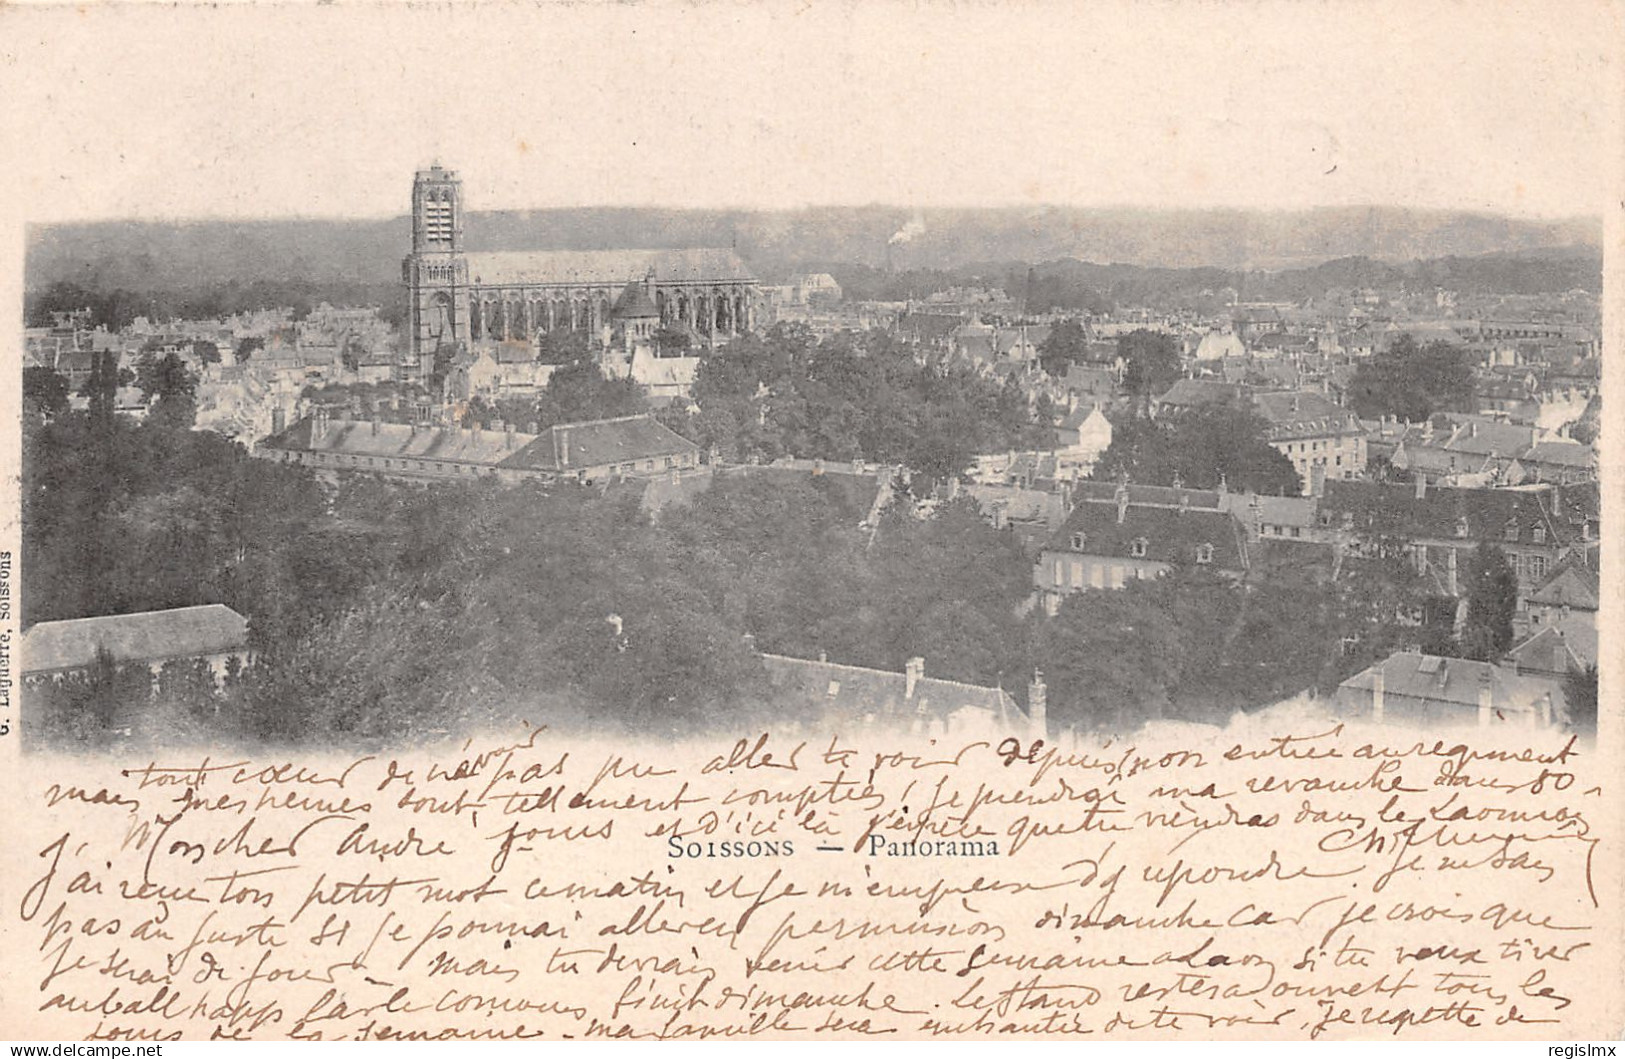 G. Laguerre, Soissons
tout cœur de n'avoir pas pu aller te voir depuis mon entrée au régiment
mais mes heures sont tellement comptées ! Je prendrai ma revanche dans 80
jours et d'ici là j'espère que tu viendras dans le Laonnois
Soissons — Panorama
Mon cher André
J'ai reçu ton petit mot ce matin et je m'empresse d'y répondre. Je ne sais
pas au juste si je pourrai aller en permission dimanche car je crois que
je serai de jour — mais tu devrais venir cette semaine à Laon si tu veux tirer
au ball happ car le concours finit dimanche. Le stand restera ouvert tous les
jours de la semaine — ma famille sera enchantée de te voir, je regrette de
delcampe.net
regislmx